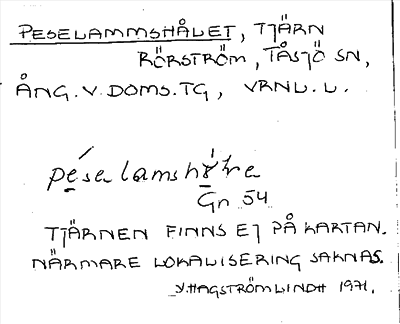 PESELAMMSHÅLET, TJÄRN
RÖRSTRÖM, TÅSJÖ SN,
ÅNG. V. DOMS. TG, VRNL. L.
Gn 54
TJÄRNEN FINNS EJ PÅ KARTAN.
NÄRMARE LOKALISERING SAKNAS.
V. HAGSTRÖM LINDH 1971.